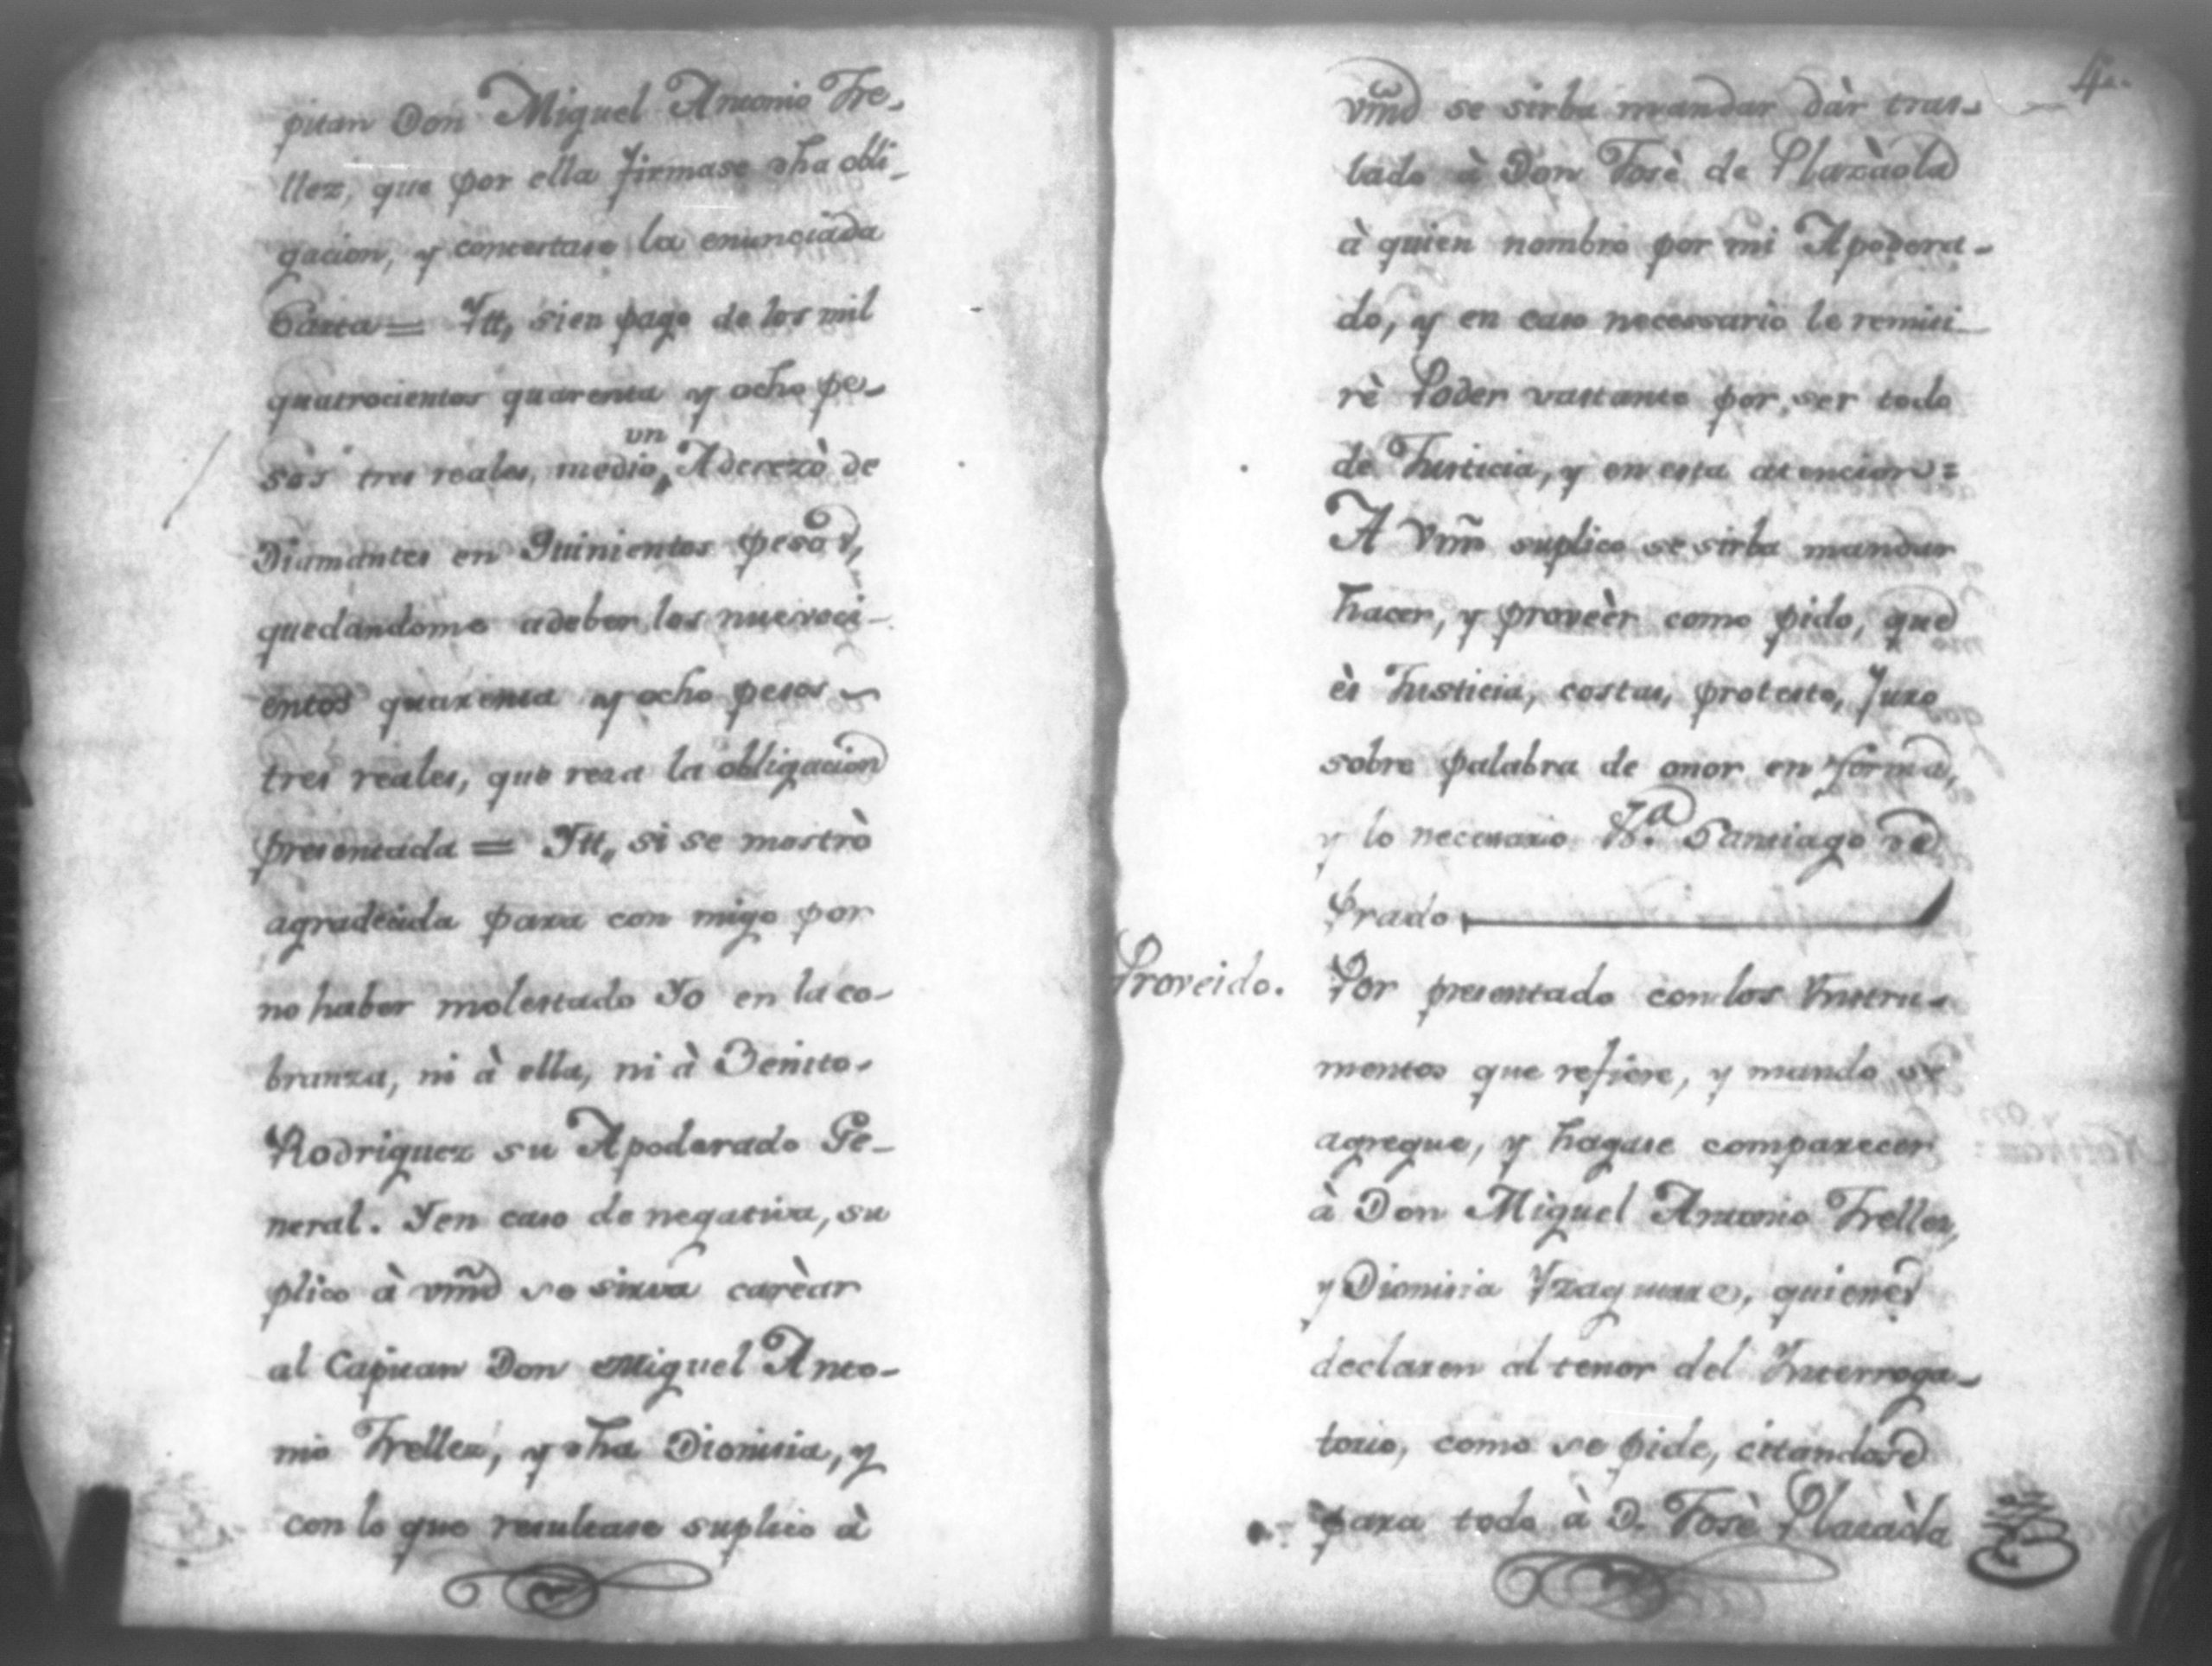 pitan Don Miguel Antonio Tre-
llez, que por ella firmase dha obli-
gacion, y contestase la enunciada
Carta = Ytt, si en pago de los mil
quatrocientos quarenta y ocho pe-
sos tres reales, medio, un Aderezò de
Diamantes en Quinientos pesos,
quedandome adeber los nueveci-
entos quarenta y ocho pesos
tres reales, que reza la obligacion
presentada = Ytt, si se mostrò
agradecida para con migo por
no haber molestado Yo en la co-
branza, ni à ella, ni à Benito
Rodriguez su Apoderado Ge-
neral. Yen caso de negativa, su
plico à vmd se sirva carèar
al Capitan Don Miguel Anto-
nio Trellez, y dha Dionisia, y
con lo que resultase suplico à
4.
vmd se sirba mandar dàr tras-
lado à Don Josè de Plazàola
à quien nombro por mi Apodera-
do, y en caso necessario le remiti
rè Poder vastante por ser todo
de Justicia, y en esta atencion =
A Vmd suplico se sirba mandar
hacer, y proveèr como pido, que
ès Justicia, costas, protesto, Juro
sobre palabra de onor en forma,
y lo necesario Santiago de
Prado
Proveido. Por presentado con los Ynstru-
mentos que refiere, y mando se
agregue, y hagase comparecer
à Don Miguel Antonio Trellez,
y Dionisia Yzaguirre, quienes
declaren al tenor del Interroga-
torio, como se pide, citandose
para todo à D. Josè Plazàola